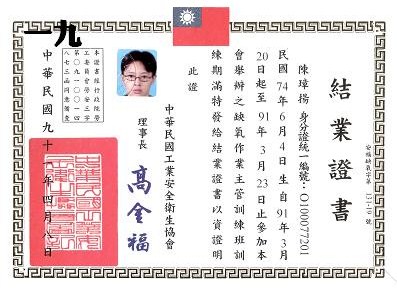 結業證書
陳璋揚 身分證統一編號:O100077201
民國74年6月4日生自91年3月
20日起至91年3月23日止參加本
會舉辦之缺氧作業主管訓練班訓
練期滿特發給結業證書以資證明
此證
中華民國工業安全衛生協會
理事長 高金福
本證書經行政院勞
工委員會勞安三字
第〇九一〇〇〇四
八七三函同意備查
中華民國九十一年四月八日
一九